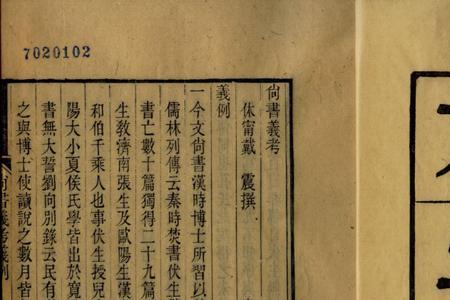 7020102
尙書義考
休甯戴　震撰
義例
一今文尙書漢時博士所習以
儒林列傳云秦時焚書伏生
書亡數十篇獨得二十九篇
生敎濟南張生及歐陽生漢
和伯千乘人也事伏生授兒
陽大小夏侯氏學皆出於寬
書無大誓劉向別錄云民有
之與博士使讀說之數月皆
尙書義考義例